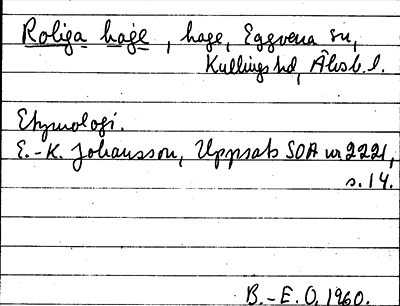 Roliga hage, hage, Eggvena sn,
Kullings hd, Älvsb. l.
Etymologi.
E.-K. Johansson, Uppsats SOA nr 2221,
s. 14.
B.-E. O. 1960.